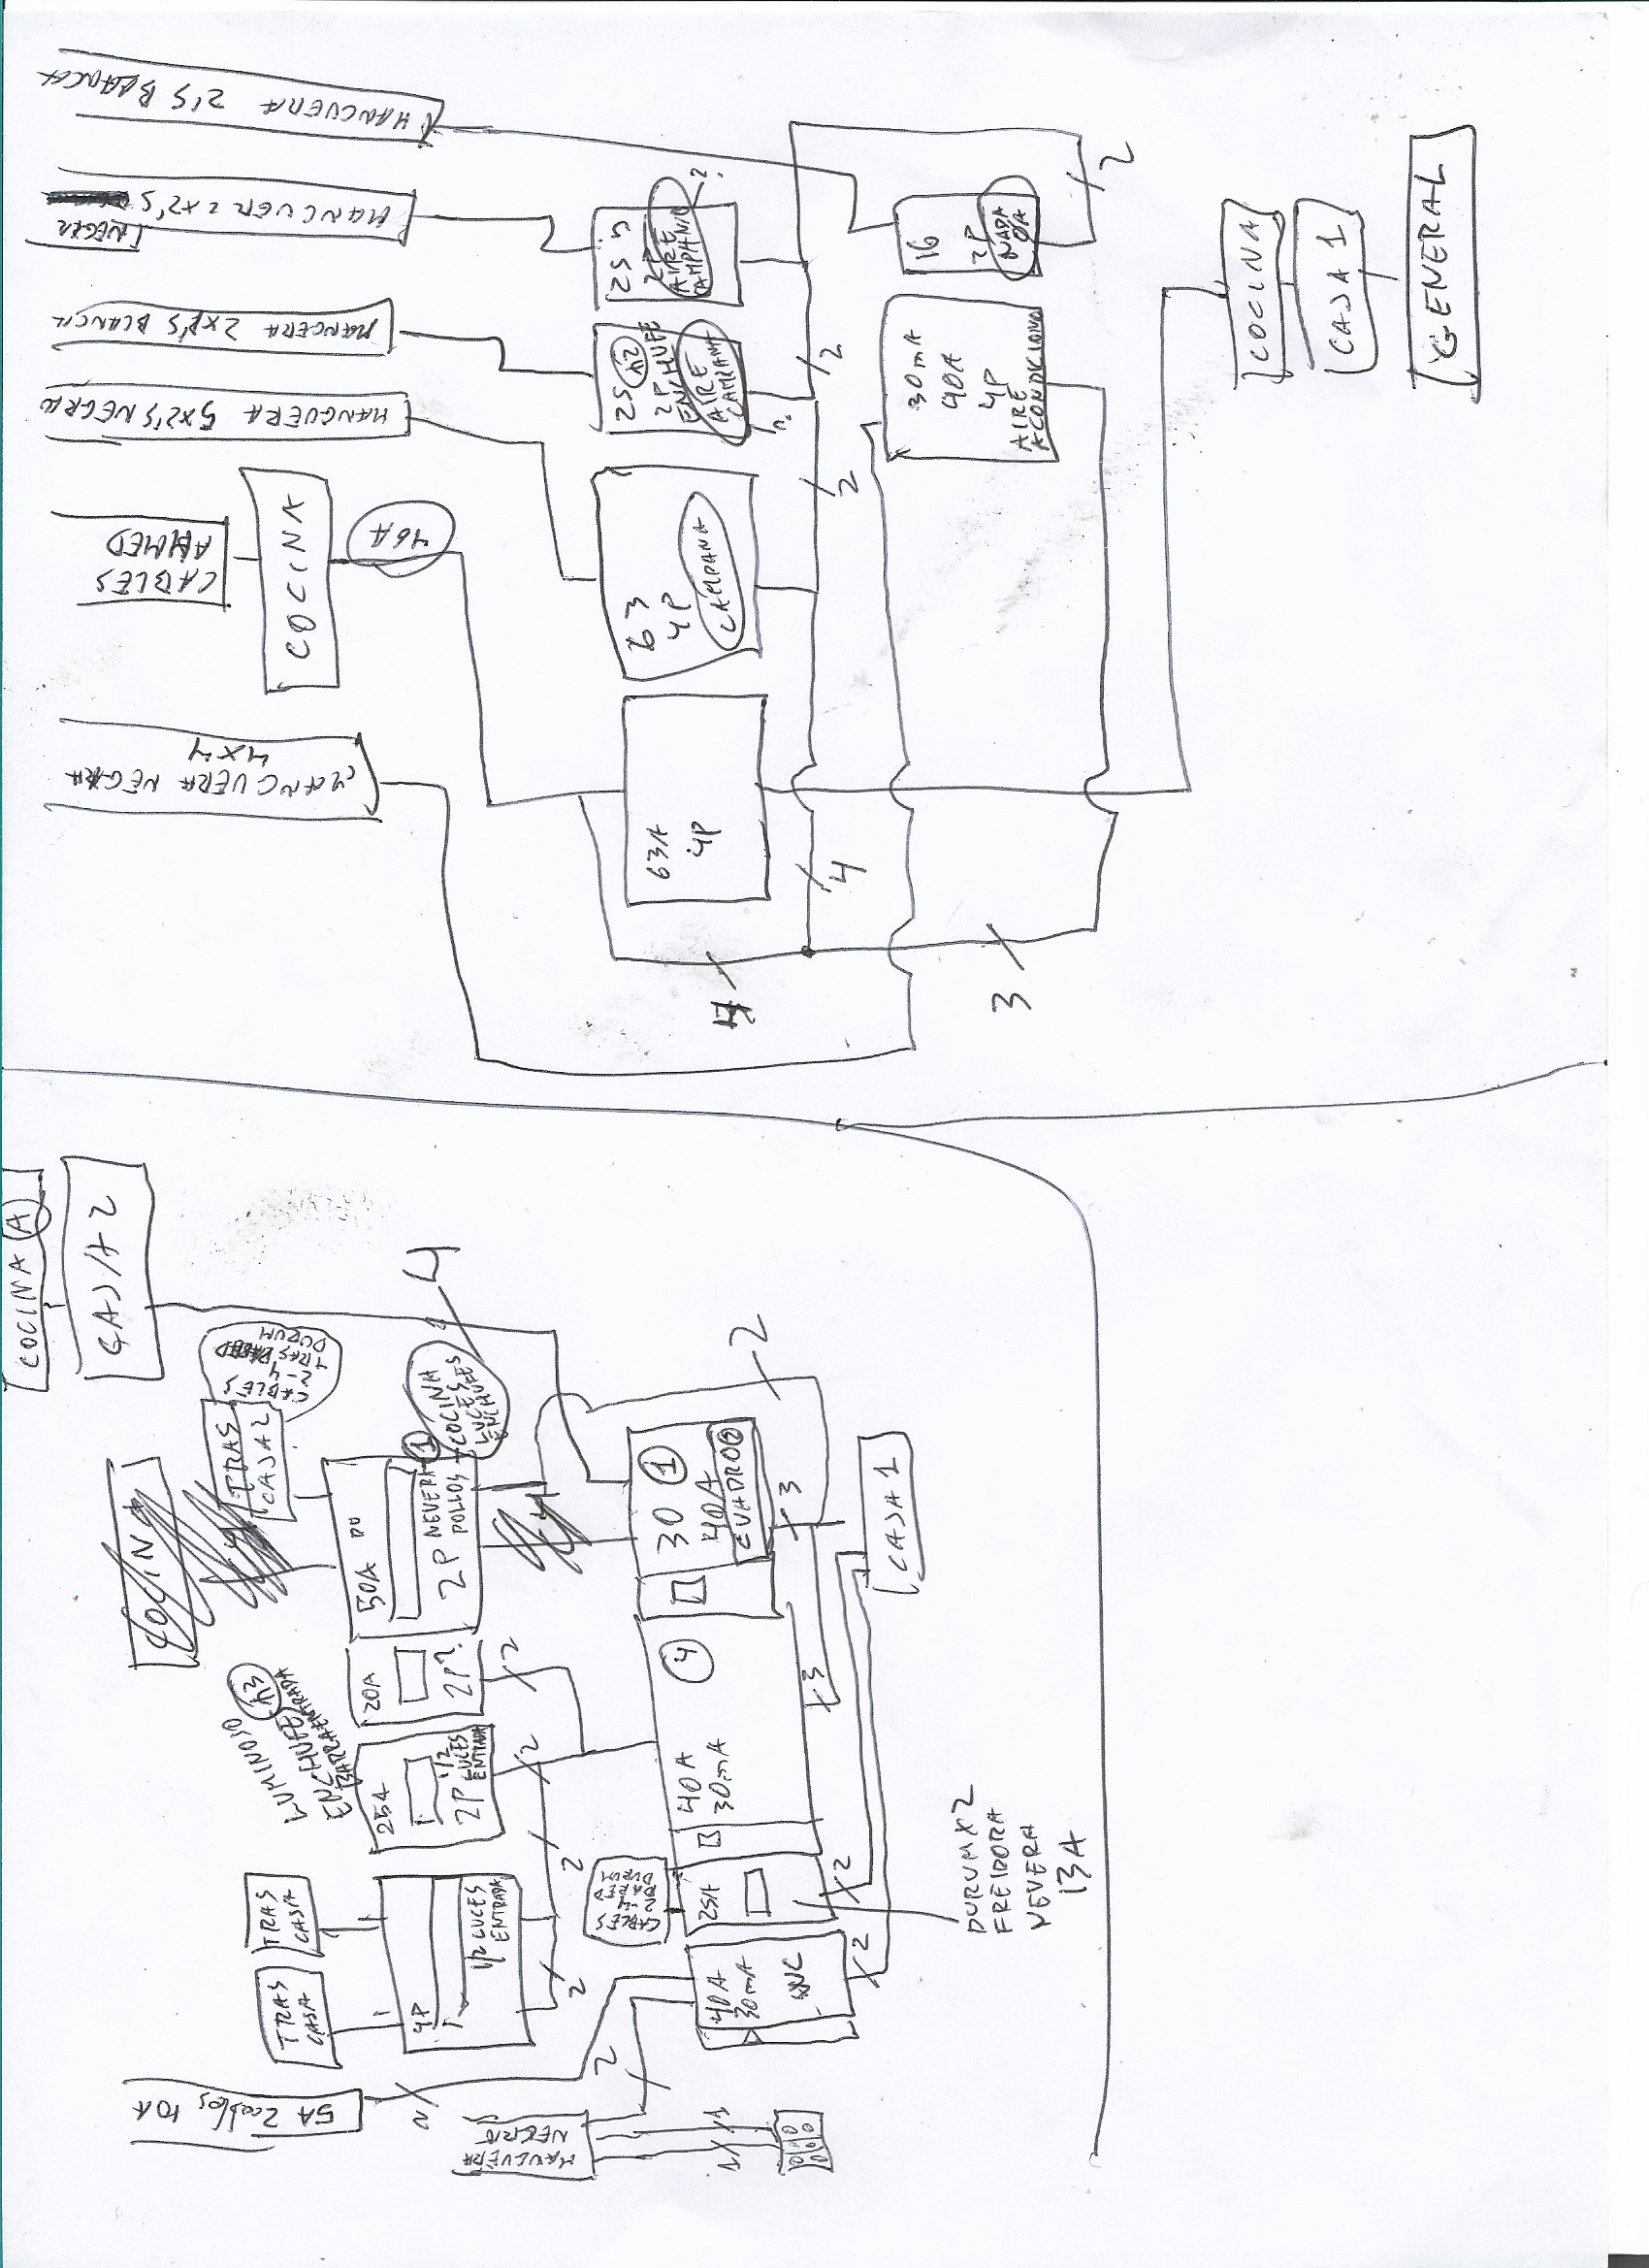 COCINA A
CAJA 2
COCINA
5A 2cables 10A
TRAS
CASA
TRAS
CASA
LUMINOSO
ENCHUFE n3
BARRA ENTRADA
TRAS
CAJA 2
CABLES
2-4
TRAS PARED
DURUM
2
4P
1/2 LUCES
ENTRADA
25A
2P 1/2
LUCES
ENTRADA
20A
2P?
50A
2P NEVERA
POLLOS
1
COCINA
LUCES
ENCHUFES
4
MANGUERA
NEGRA
2
2
2
2
2
4
CABLES
2-4
PARED
DURUM
1
1
40A
30mA
25A
40A
30mA
4
30 1
40A
CUADRO 2
2
3
3
2
2
CAJA 1
DURUM X 2
FREIDORA
NEVERA
13A
MANGUERA NEGRA
4X4
CABLES
AHMED
MANGUERA 5X2'S NEGRO
MANGERA 2X2'S BLANCA
NEGRA
MANGUER 2X2'S
MANGUERA 2'S BLANCA
COCINA
46A
63A
4P
63
4P
CAMPANA
25 n2
2P
ENCHUFE
AIRE
CAMPANA
?
25
2P
AIRE
CAMPANA
?
4
2
2
3
30mA
40A
4P
AIRE
ACONDICIONO
16
2P
NADA
0A
2
COCINA
CAJA 1
GENERAL